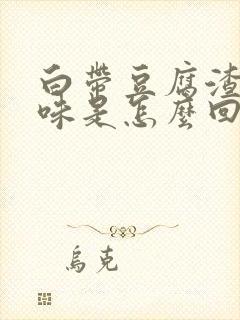 白帶豆腐渣
味是怎麼回
烏克